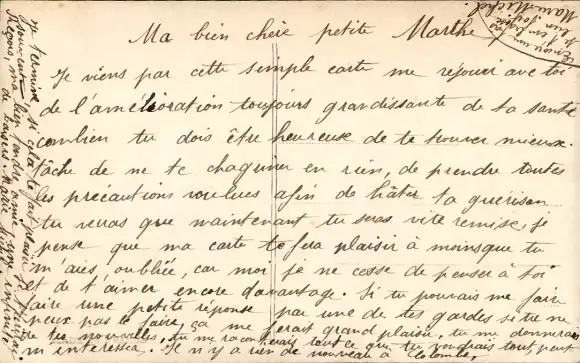 Ma bien chère petite Marthe
Je viens par cette simple carte me rejouir avec toi
de l'amélioration toujours grandissante de ta santé
combien tu dois être heureuse de te trouver mieux.
tâche de ne te chagriner en rien, de prendre toutes
les précautions voulues afin de hâter ta guerison
tu verras que maintenant tu seras vite remise, je
pense que ma carte te fera plaisir à moins que tu
m'aies oubliée, car moi je ne cesse de penser à toi
et de t'aimer encore davantage. Si tu pouvais me faire
faire une petite réponse par une de tes gardes si tu ne
peux pas le faire, ça me ferait grand plaisir, tu me donnerais
de tes nouvelles, tu me raconterais tout ce que tu voudrais tout, peut
m'interesser. Je n'y a rien de nouveau à Colombes
Je termine si cela te fait
souvent bien tendre amie
Reçois, ma
de baisers Marie
Marie Michel.